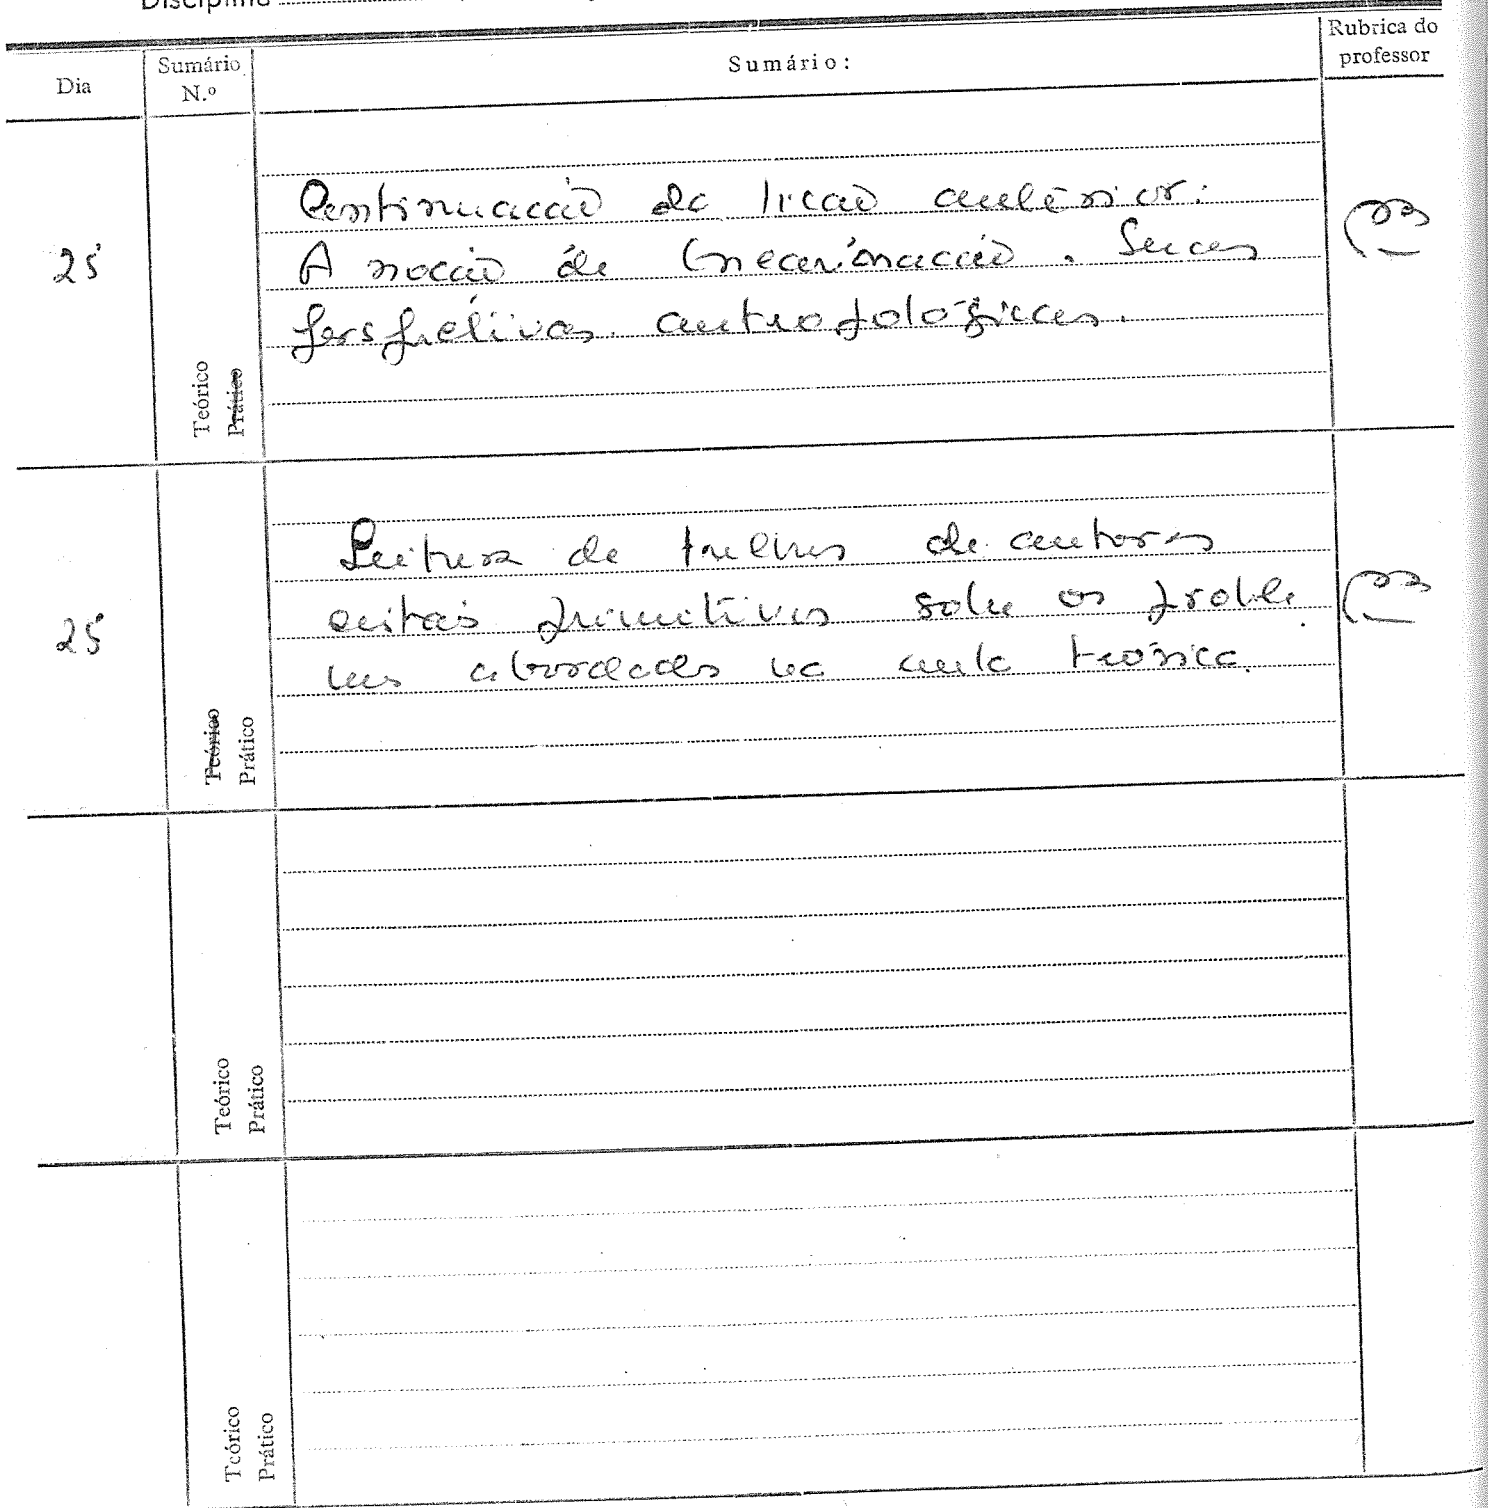 Disciplina
Dia
Sumário N.º
Sumário:
Rubrica do professor
25
Teórico
Prático
Continuação da lição anterior:
A noção de Encarnação. Suas
perspectivas antropológicas.
25
Teórico
Prático
Leitura de trechos de autores
cristãos primitivos sobre os proble
mas abordados na aula teórica.
Teórico
Prático
Teórico
Prático